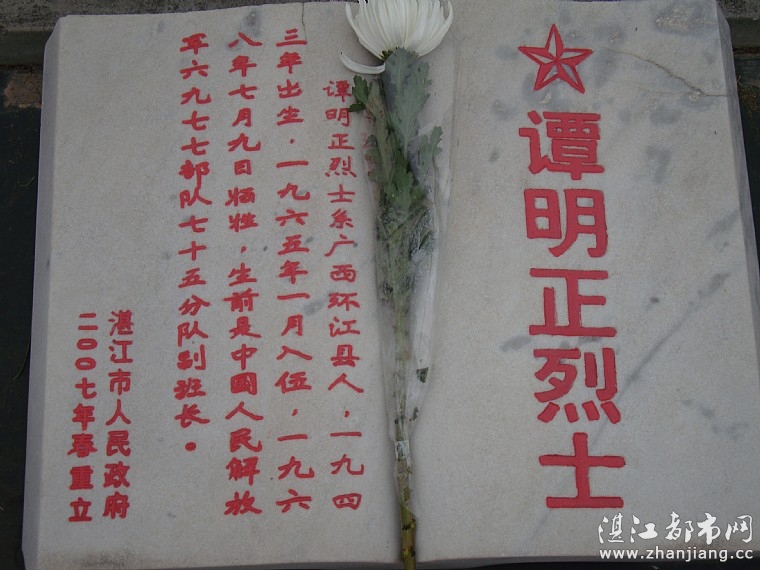 谭明正烈士
谭明正烈士系广西环江县人，一九四
三年出生，一九六五年一月入伍，一九六
八年七月九日牺牲，生前是中國人民解放
军六九七七部队七十五分队副班长。
湛江市人民政府
二00七年春重立
湛江都市网
www.zhanjiang.cc